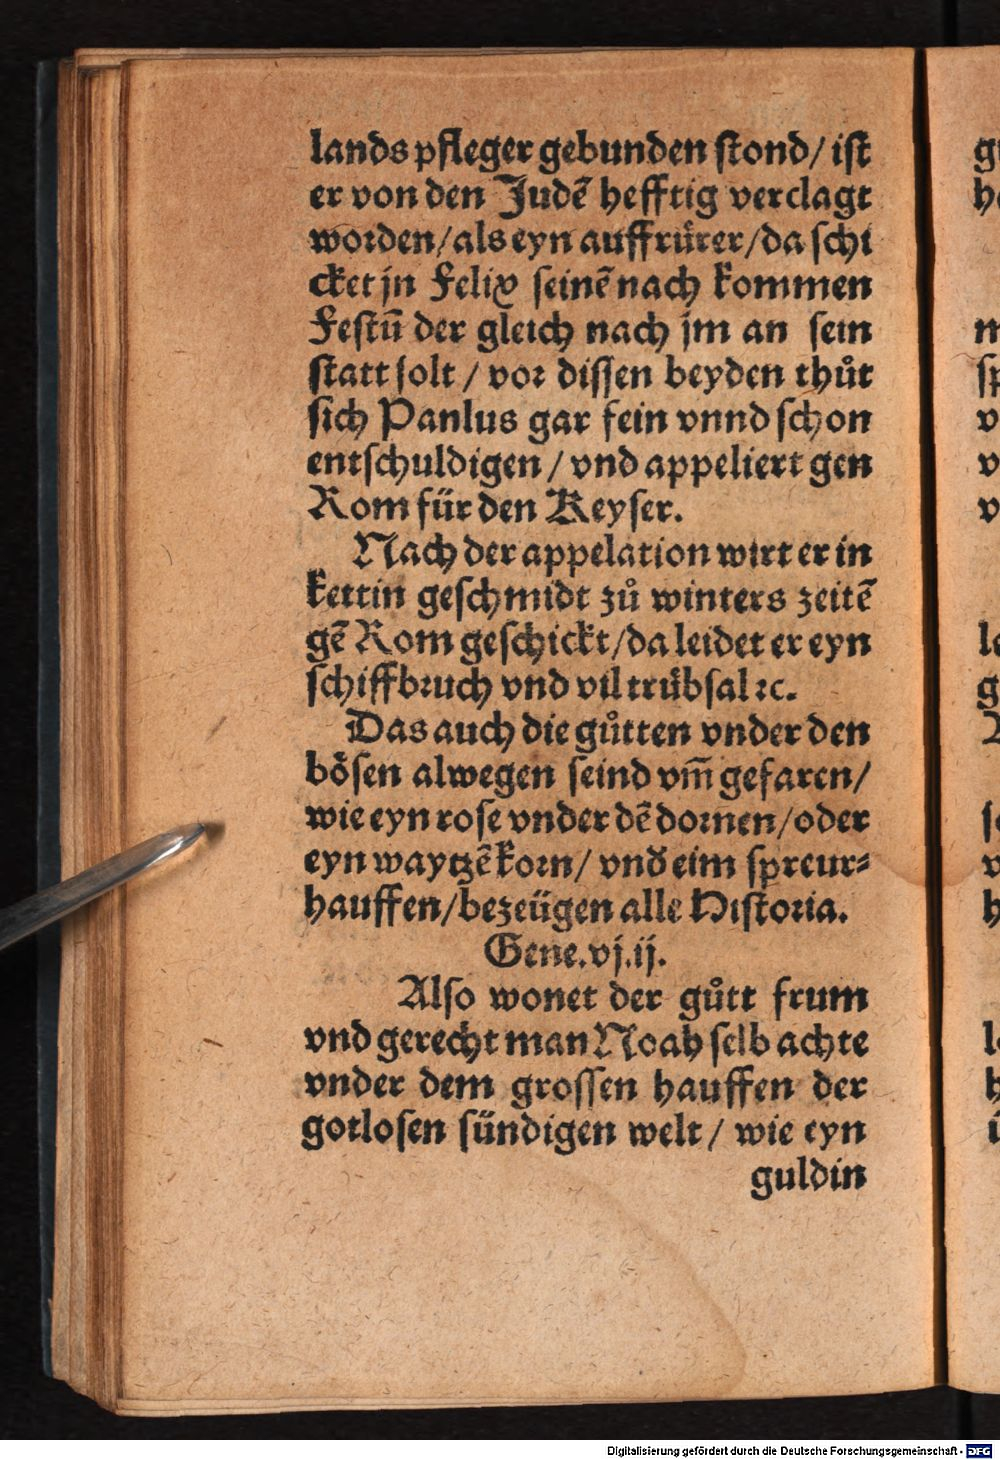 lands pfleger gebunden stond/ ist
er von den Judẽ hefftig verclagt
worden/als eyn auffrůrer/da schi
cket jn Felix seinẽ nach kommen
Festũ der gleich nach jm an sein
statt solt / vor dissen beyden thůt
sich Panlus gar fein vnnd schon
entschuldigen / vnd appeliert gen
Rom für den Keyser.
Nach der appelation wirt er in
kettin geschmidt zů winters zeitẽ
gẽ Rom geschickt/da leidet er eyn
schiffbruch vnd vil trůbsal ꝛc.
Das auch die gůtten vnder den
bôsen alwegen seind vm̃ gefaren/
wie eyn rose vnder dẽ dornen/oder
eyn waytzẽ korn/ vnd eim spreur⸗
hauffen/bezeügen alle Historia.
Gene.vj.ij.
Also wonet der gůtt frum
vnd gerecht man Noah selb achte
vnder dem grossen hauffen der
gotlosen sündigen welt/ wie eyn
guldin
Digitalisierung gefördert durch die Deutsche Forschungsgemeinschaft - DFG